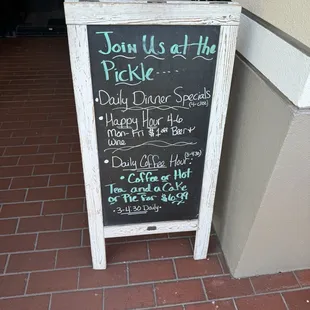 Join Us at the
Pickle.....
• Daily Dinner Specials
• Happy Hour 4-6
Mon-Fri $1 off Beer +
Wine
• Daily Coffee Hour:
• Coffee or Hot
Tea and a Cake
or Pie for $6.99
• 3-4:30 Daily